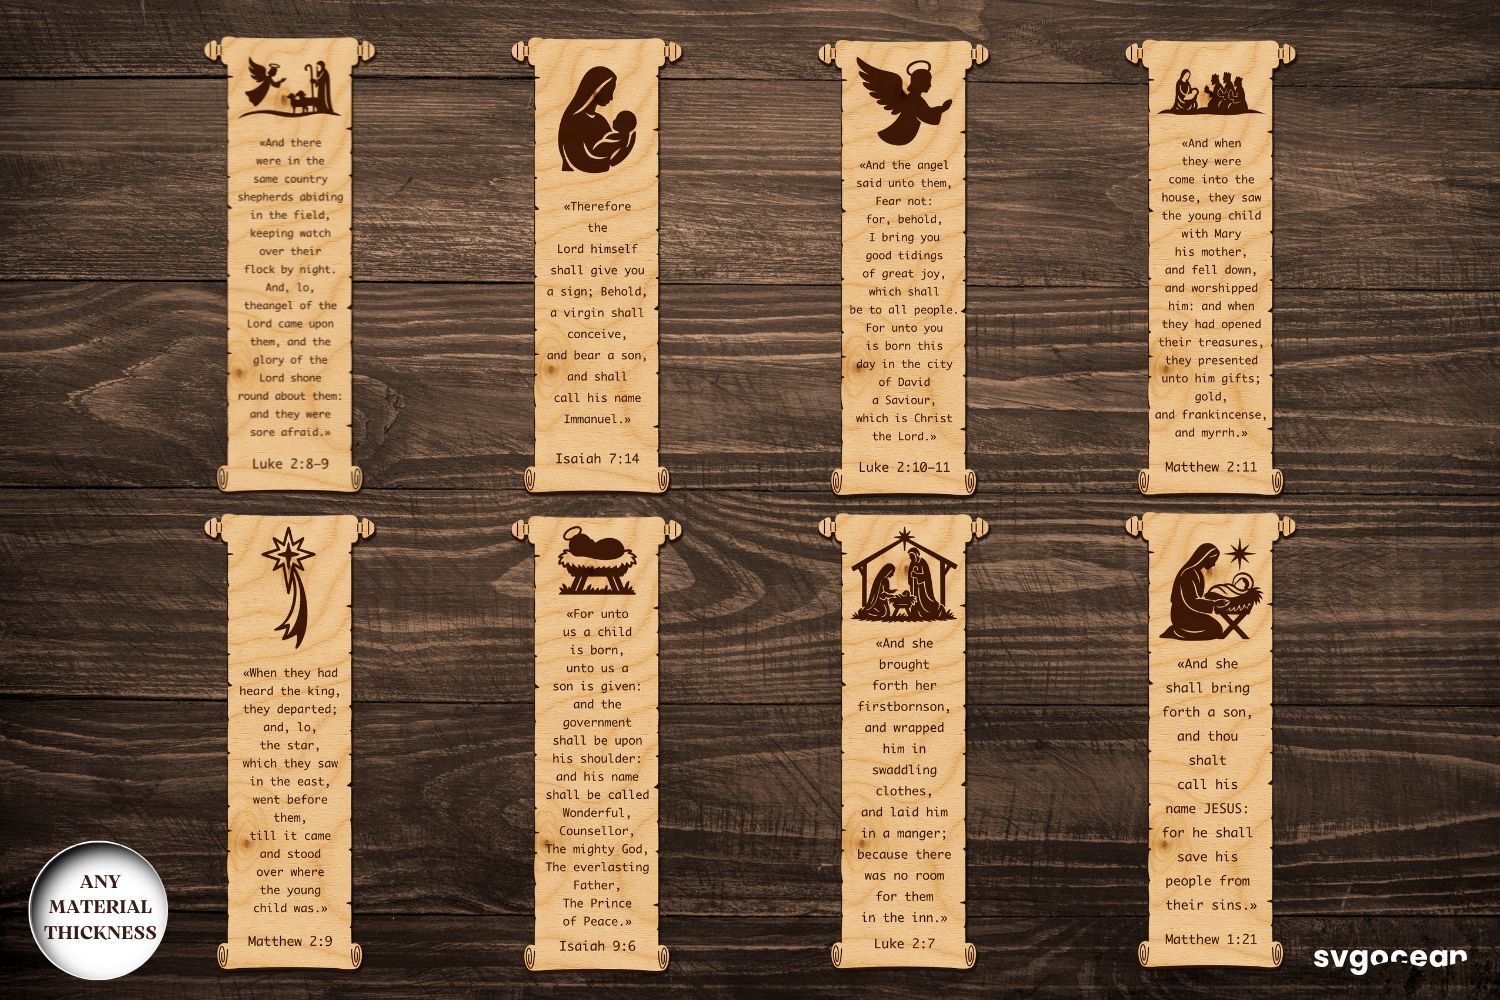 «And there
were in the
same country
shepherds abiding
in the field,
keeping watch
over their
flock by night.
And, lo,
theangel of the
Lord came upon
them, and the
glory of the
Lord shone
round about them:
and they were
sore afraid.»
Luke 2:8–9
«Therefore
the
Lord himself
shall give you
a sign; Behold,
a virgin shall
conceive,
and bear a son,
and shall
call his name
Immanuel.»
Isaiah 7:14
«And the angel
said unto them,
Fear not:
for, behold,
I bring you
good tidings
of great joy,
which shall
be to all people.
For unto you
is born this
day in the city
of David
a Saviour,
which is Christ
the Lord.»
Luke 2:10–11
«And when
they were
come into the
house, they saw
the young child
with Mary
his mother,
and fell down,
and worshipped
him: and when
they had opened
their treasures,
they presented
unto him gifts;
gold,
and frankincense,
and myrrh.»
Matthew 2:11
«When they had
heard the king,
they departed;
and, lo,
the star,
which they saw
in the east,
went before
them,
till it came
and stood
over where
the young
child was.»
Matthew 2:9
«For unto
us a child
is born,
unto us a
son is given:
and the
government
shall be upon
his shoulder:
and his name
shall be called
Wonderful,
Counsellor,
The mighty God,
The everlasting
Father,
The Prince
of Peace.»
Isaiah 9:6
«And she
brought
forth her
firstbornson,
and wrapped
him in
swaddling
clothes,
and laid him
in a manger;
because there
was no room
for them
in the inn.»
Luke 2:7
«And she
shall bring
forth a son,
and thou
shalt
call his
name JESUS:
for he shall
save his
people from
their sins.»
Matthew 1:21
ANY
MATERIAL
THICKNESS
svgocean